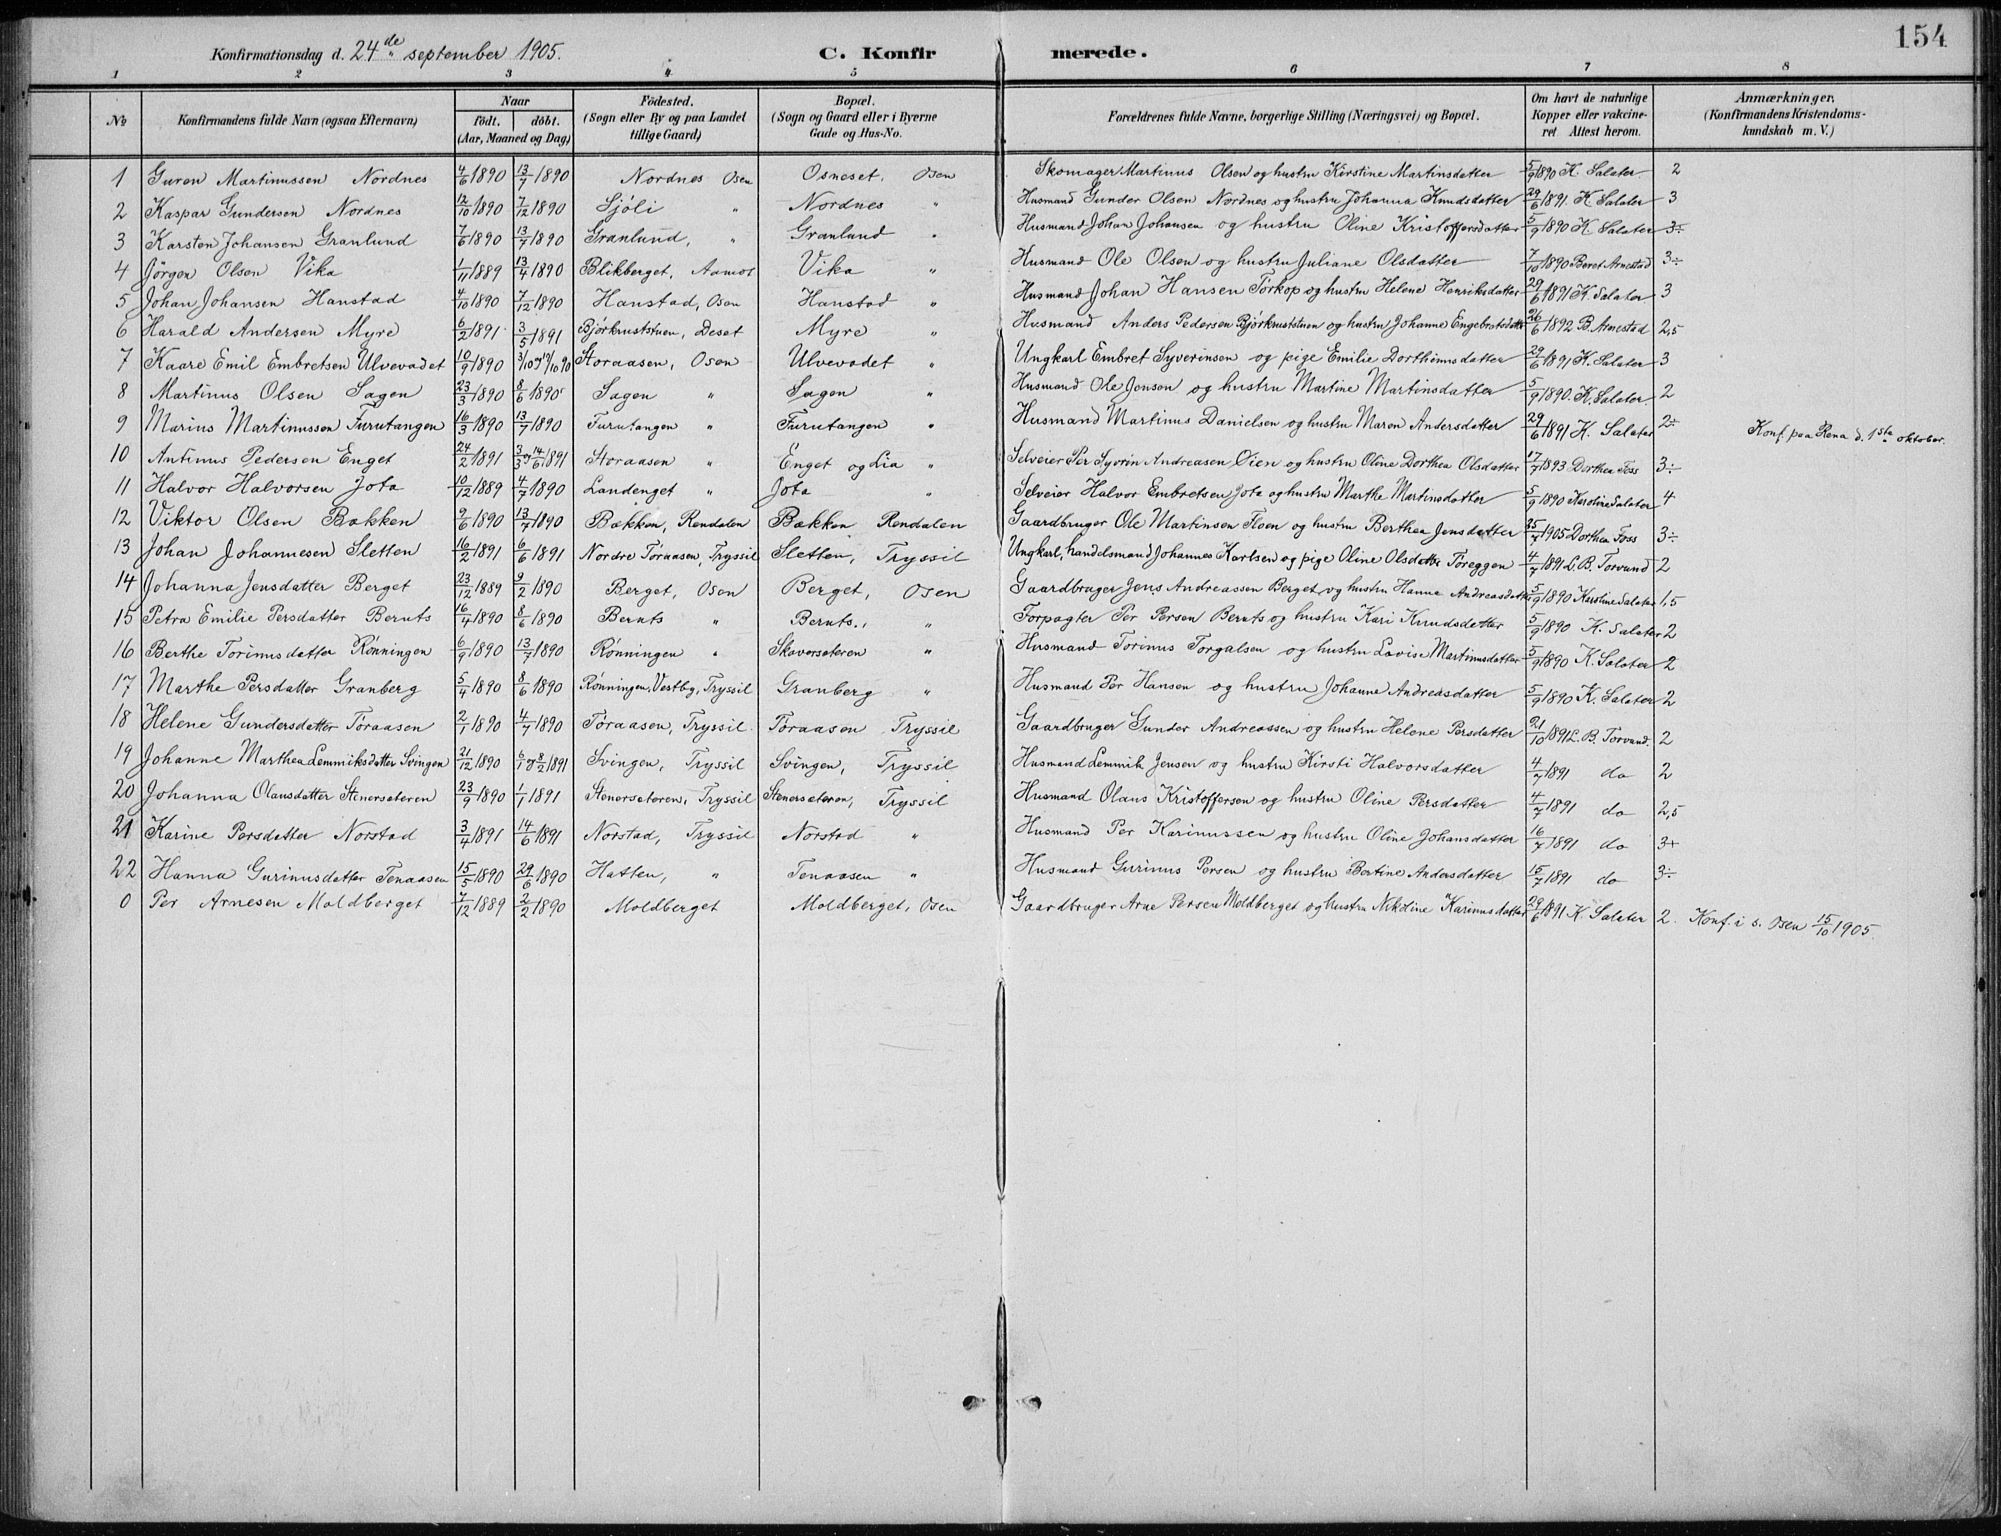 154
Konfirmationsdag d. 24de september 1905.
C. Konfirmerede.
1 2 3 4 5 6 7 8
No
Konfirmandens fulde Navn (ogsaa Efternavn)
Naar
født. døbt.
(Aar, Maaned og Dag)
Fødested.
(Sogn eller By og paa Landet
tillige Gaard)
Bopæl.
(Sogn og Gaard eller i Byerne
Gade og Hus-No.
Forældrenes fulde Navne, borgerlige Stilling (Næringsvei) og Bopæl.
Om havt de naturlige
Kopper eller vakcine-
ret Attest herom.
Anmærkninger.
(Konfirmandens Kristendoms-
kundskab m. V.)
1 Guren Martinussen Nordnes 4/6 1890 13/7 1890 Nordnes Osen Osneset, Osen Skomager Martinus Olsen og hustru Kirstine Martinsdatter 5/9 1890 K. Salater 2
2 Kaspar Gundersen Nordnes 12/10 1890 7/12 1890 Sjöli " Nordnes " Husmand Gunder Olsen Nordnes og hustru Johanna Knudsdatter 29/6 1891 K. Salater 3
3 Karsten Johansen Granlund 7/6 1890 13/7 1890 Granlund, " Granland " Husmand Johan Johansen og hustru Oline Kristoffersdatter 5/9 1890 K. Salater 3÷
4 Jörgen Olsen Vika 1/11 1889 13/4 1890 Blikberget, Aamot Vika " Husmand Ole Olsen og hustru Juliane Olsdatter 7/10 1890 Beret Arnestad 3÷
5 Johan Johansen Hanstad 4/10 1890 7/12 1890 Hanstad, Osen Hanstad " Husmand Johan Hansen Törkop og hustru Helene Henriksdatter 29/6 1891 K. Salater 3
6 Harald Andersen Myre 6/2 1891 3/5 1891 Björkruststuen, Deset Myre " Husmand Anders Pedersen Björkruststuen og hustru Johanne Engebretsdatter 26/6 1892 B. Arnestad 2,5
7 Kaare Emil Embretsen Ulvevadet 10/9 1890 3/10 og 19/10 90 Storaasen, Osen Ulvevadet " Ungkarl Embret Syverinsen og pige Emilie Dorthinusdatter 29/6 1891 K. Salater 3
8 Martinus Olsen Sagen 23/3 1890 8/6 1890 Sagen " Sagen " Husmand Ole Jonsen og hustru Martine Martinsdatter 5/9 1890. K. Salater. 2
9 Marius Martinussen Furutangen 16/3 1890 13/7 1890 Furutangen " Furutangen " Husmand Martinus Danielsen og hustru Maren Andersdatter 29/6 1891 K. Salater 2÷ Konf. paa Rena d. 1ste oktober.
10 Antinus Pedersen Enget 24/2 1891 3/3 og 14/6 1891 Storaasen " Enget og Lia " Selveier Per Syvrin Andreasen Øien og hustru Oline Dorthea Olsdatter 17/7 1893 Dorthea Foss 3÷
11 Halvor Halvorsen Jota 10/12 1889 4/7 1890 Landenget " Jota " Selveier Halvor Embretsen Jota og hustru Marthe Martinsdatter 5/9 1890 Karoline Salater 4
12 Viktor Olsen Bakken 9/6 1890 13/7 1890 Bakken, Rendalen Bakken Rendalen Gaardbruger Ole Martinsen Floen og hustru Berthea Jensdatter 25/7 1905 Dorthea Foss 3÷
13 Johan Johannesen Sletten 16/2 1891 6/6 1891 Nordre Töraasen, Tryssil Sletten, Tryssil Ungkarl, handelsmand Johannes Karlsen og pige Oline Olsdatter Töreggen 4/7 1891 L. B. Torvund 2
14 Johanna Jensdatter Berget 23/12 1889 9/2 1890 Berget, Osen Berget, Osen Gaardbruger Jens Andreassen Berget og hustru Hanne Andreasdatter 5/9 1890 Karoline Salater 1,5
15 Petra Emilie Persdatter Beruts 16/4 1890 8/6 1890 Beruts " Beruts., " Forpagter Per Persen Beruts og hustru Kari Knudsdatter 5/9 1890 K. Salater 2
16 Berthe Torinusdatter Rönningen 6/9 1890 13/7 1890 Rönningen " Skaversæteren " Husmand Torinus Torgalsen og hustru Lovise Martinusdatter 5/9 1890 K. Salater 2
17 Marthe Persdatter Granberg 5/4 1890 8/6 1890 Rønningen, Vestby, Tryssil Granberg " Husmand Per Hansen og hustru Johanne Andreasdatter 5/9 1890 K. Salater 2
18 Helene Gundersdatter Töraasen 2/1 1890 4/7 1890 Töraasen, Tryssil. Töraasen Tryssil Gaardbruger Gunder Andreassen og hustru Helene Persdatter 21/10 1891 L. B. Torvund. 2
19 Johanne Marthea Lemmiksdatter Svingen 21/12 1890 6/1 og 8/2 1891 Svingen, Tryssil Svingen, Tryssil Husmand Lemmik Jensen og hustru Kirsti Halvorsdatter 4/7 1891 do 2
20 Johanna Olausdatter Stenersæteren 23/9 1890 1/1 1891 Stenersæteren, Tryssil Stenersæteren, Tryssil Husmand Olaus Kristoffersen og hustru Oline Persdatter 4/7 1891 do 2,5
21 Karine Persdatter Norstad 3/4 1891 14/6 1891 Norstad, Tryssil Norstad " Husmand Per Karinussen og hustru Oline Johansdatter 16/7 1891 do 3+
22 Hanna Gurinusdatter Tenaasen 15/5 1890 29/6 1890 Hatten, " Tenaasen " Husmand Gurinus Persen og hustru Bertine Andersdatter 15/7 1891 do 3÷
0 Per Arnesen Moldberget 7/12 1889 2/2 1890 Moldberget Moldberget, Osen Gaardbruger Arne Persen Moldberget og hustru Nikoline Karinusdatter 29/6 1891 K. Salater 2. Konf. i s. Osen 15/10 1905.